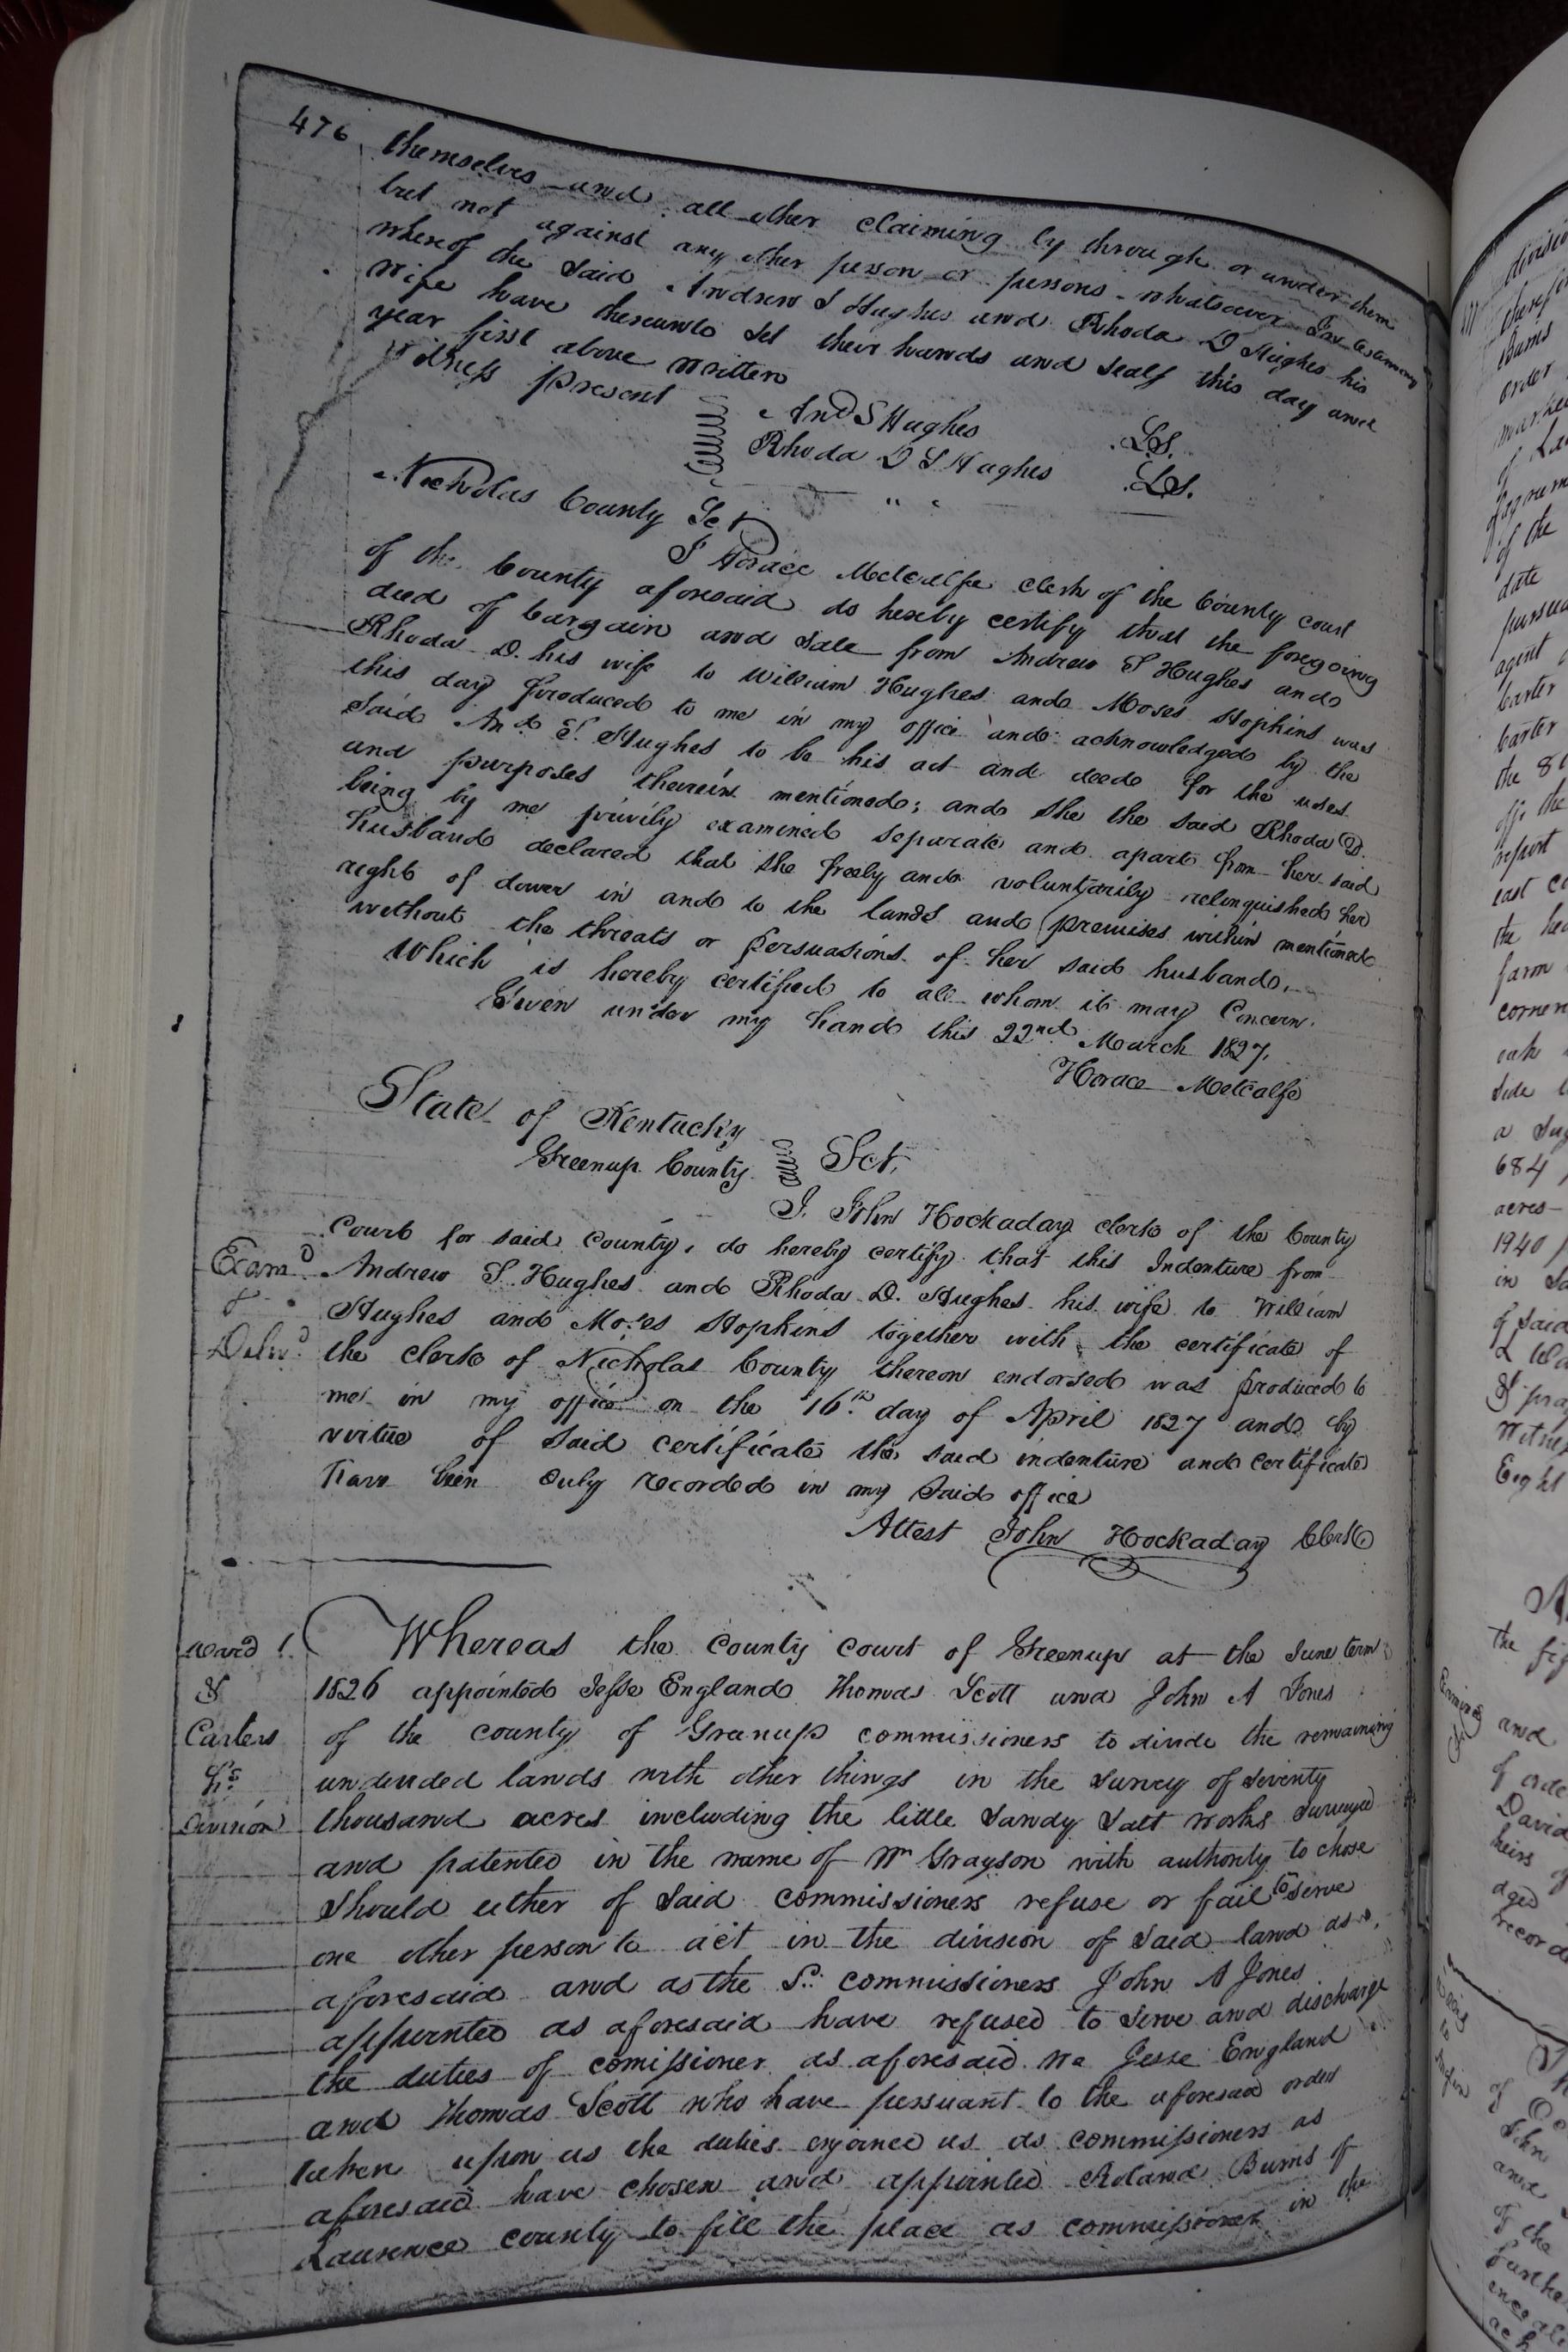 476
themselves and all other claiming by through or under them
but not against any other person or persons whatsoever In testamony
whereof the said Andrew S Hughes and Rhoda D Hughes his
wife have thereunto set their hands and seals this day and
year first above written
Witness present
And S Hughes L.S.
Rhoda D S Hughes L.S.
" "
Nicholas County Sct
I Horace Metcalfe clerk of the County court
of the County aforesaid do hereby certify that the foregoing
deed of bargain and sale from Andrew S Hughes and
Rhoda D. his wife to William Hughes and Moses Hopkins was
this day produced to me in my office and acknowledged by the
said And. S. Hughes to be his act and deed for the uses
and purposes therein mentioned; and she the said Rhoda D.
being by me privily examined separate and apart from her said
husband declared that she freely and voluntarily relinquished her
right of dower in and to the lands and premises within mentioned
without the threats or persuasions of her said husband.
Which is hereby certified to all whom it may Concern.
Given under my hand this 22nd March 1827.
Horace Metcalfe
State of Kentucky
Greenup County Sct,
I. John Hockaday clerk of the County
Court for said County, do hereby certify that this Indenture from
Examd Andrew S. Hughes and Rhoda D. Hughes his wife to William
& Hughes and Moses Hopkins together with the certificate of
Delvd the clerk of Nicholas County thereon endorsed was produced to
me in my office on the 16th day of April 1827 and by
virtue of said certificate the said indenture and certificate
have been duly recorded in my said office
Attest John Hockaday Clerk
Whereas the county court of Greenup at the June term
& 1826 appointed Jesse England Thomas Scott and John A Jones
Carters of the county of Greenup commissioners to divide the remaining
hs undivided lands with other things in the survey of seventy
Division thousand acres including the little Sandy Salt works surveyed
and patented in the name of Wm Grayson with authority to chose
should either of said commissioners refuse or fail to serve
one other person to act in the division of said land as
aforesaid and as the Sd commissioners John A Jones
appointed as aforesaid have refused to serve and discharge
the duties of comissioner as aforesaid we Jesse England
and Thomas Scott who have persuant to the aforesaid order
taken upon us the duties enjoined us as commissioners as
aforesaid have chosen and appointed Roland Burns of
Laurence county to fill the place as commissioner in the